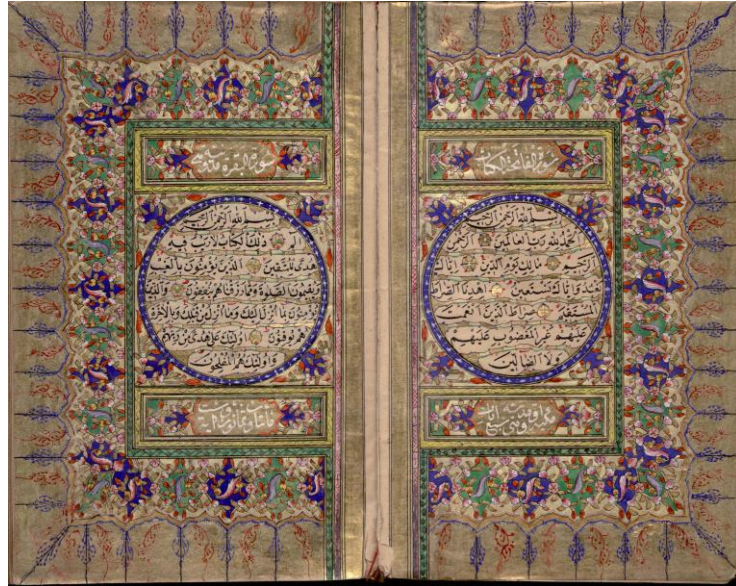 سورة الفاتحة الكتاب
بسم الله الرحمن الرحيم
الحمد لله رب العالمين الرحمن
الرحيم مالك يوم الدين إياك
نعبد وإياك نستعين اهدنا الصراط
المستقيم صراط الذين أنعمت
عليهم غير المغضوب عليهم
ولا الضالين
مكية أو مدنية وهي سبع آيات
سورة البقرة مدنية
بسم الله الرحمن الرحيم
الم ذلك الكتاب لا ريب فيه
هدى للمتقين الذين يؤمنون بالغيب
ويقيمون الصلوة ومما رزقناهم ينفقون والذين
يؤمنون بما أنزل إليك وما أنزل من قبلك وبالآخرة
هم يوقنون أولئك على هدى من ربهم
وأولئك هم المفلحون
مائتان وثمانون وست آية